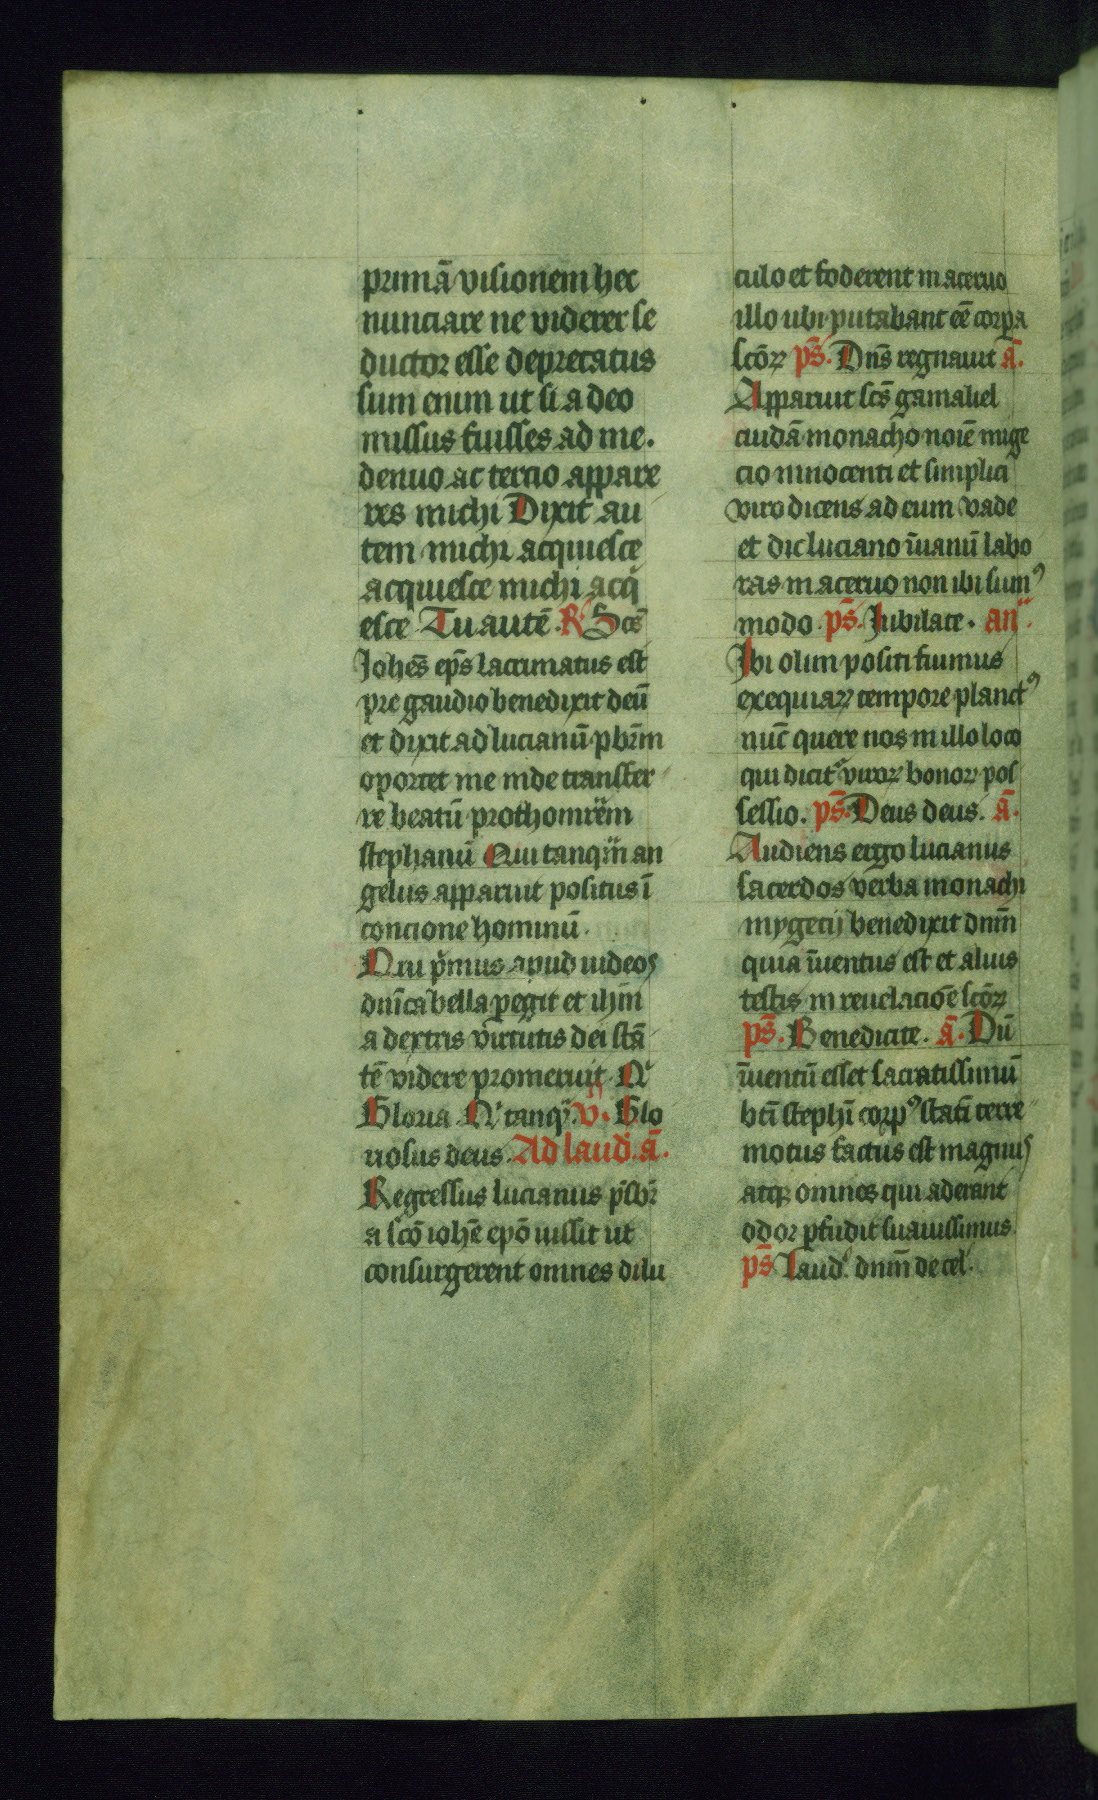 primā visionem hec
nunciare ne viderer se
ductor esse deprecatus
sum enim ut si a deo
missus fuisses ad me.
denuo ac tercio appare
res michi Dixit au
tem michi acquiesce
acquiesce michi acq̄
esce Tu autē. R Scs̄
Johēs ep̄s lacrimatus est
pre gaudio benedixit deū
et dixit ad lucianū pbr̄m
oportet me inde transfer
re beatū prothomrēm
stephanū Qui tanqm̄ an
gelus apparuit positus ī
concione hominū.
Qui pͥmus apud iudeos
dnīca bella pegit et ihm̄
a dextris virtutis dei stā
tē videre promeruit. Qͥ
Gloria. Qͥ tanq. v. Glo
riosus deus. Ad laud. ā.
Regressus lucianus pͥsbr̄
a scō iohē epō iussit ut
consurgerent omnes dilu
culo et foderent in aceruo
illo ubi putabant eē corpa
scōꝝ ps̄. Dns̄ regnauit ā.
Apparuit scs̄ gamaliel
cuidā monacho noīe mige
cio innocenti et simplici
viro dicens ad eum vade
et dic luciano īuanū labo
ras in aceruo non ibi sumꝰ
modo ps̄. Jubilate. an̄.
Jbi olim positi fuimus
exequiaꝝ tempore planctꝰ
nūc quere nos in illo loco
qui dicit᷑ viroꝝ bonoꝝ pos
sessio. ps̄. Deus deus. ā.
Audiens ergo lucianus
sacerdos verba monachi
mygecij benedixit dnm̄
quia īuentus est et alius
testis in reuelaciōe scōꝝ
ps̄. Benedicite. ā. Dū
īuentū esset sacratissimū
bt̄i steph̄i corpꝰ statī terre
motus factus est magnus
atqꝫ omnes qui aderant
odor pfudit suauissimus.
ps̄ Laud. dnm̄ de cel.